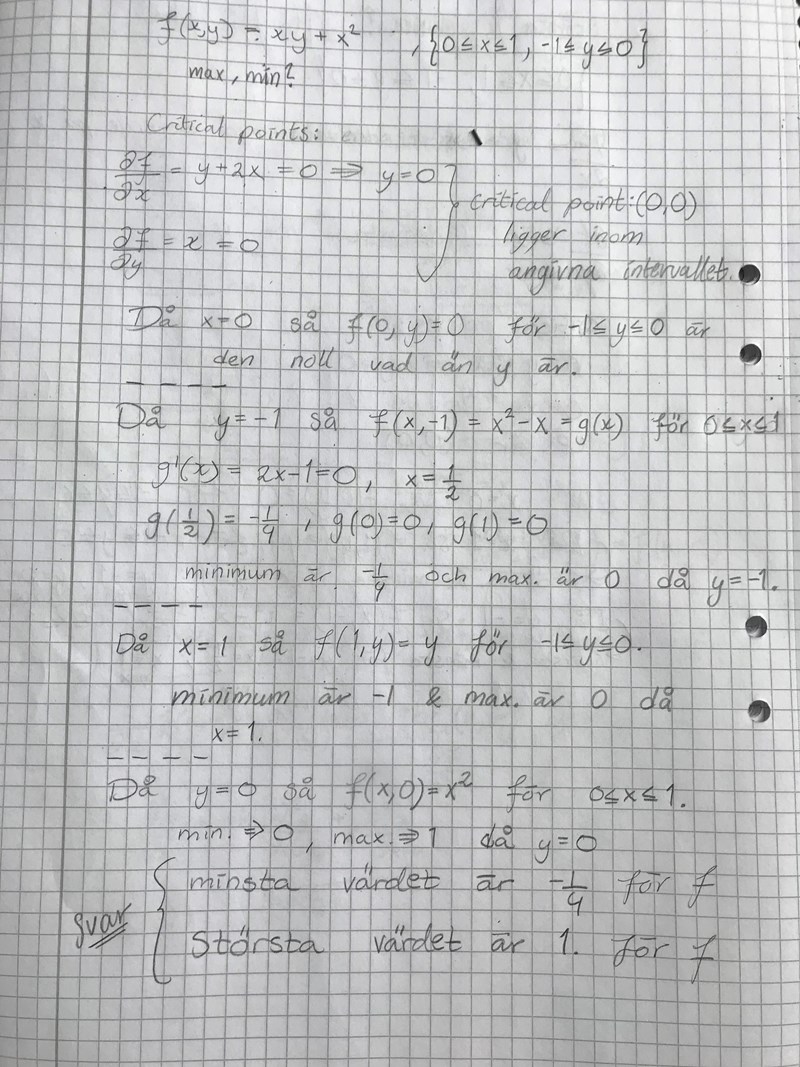 f(x,y) = xy + x² , {0 ≤ x ≤ 1, -1 ≤ y ≤ 0}
max, min?
Critical points:
∂f/∂x = y + 2x = 0 ⇒ y = 0
∂f/∂y = x = 0
critical point: (0,0)
ligger inom
angivna intervallet.
Då x=0 så f(0, y) = 0 för -1 ≤ y ≤ 0 är
den noll vad än y är.
- - - -
Då y = -1 så f(x, -1) = x² - x = g(x) för 0 ≤ x ≤ 1
g'(x) = 2x - 1 = 0, x = 1/2
g(1/2) = -1/4, g(0) = 0, g(1) = 0
minimum är -1/4 och max. är 0 då y = -1.
- - - -
Då x = 1 så f(1, y) = y för -1 ≤ y ≤ 0.
minimum är -1 & max. är 0 då
x = 1.
- - - -
Då y = 0 så f(x, 0) = x² för 0 ≤ x ≤ 1.
min. ⇒ 0, max. ⇒ 1 då y = 0
svar { minsta värdet är -1/4 för f
största värdet är 1. för f